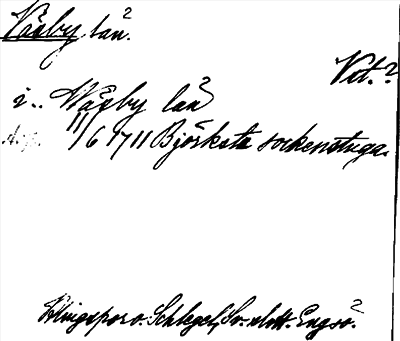 Väsby, lan?
Vst.?
i.. Wäsby lan?
11/6 1711 Björksta sockenstuga.
Klingspor o. Schlegel, Sv. slott. Engsö?